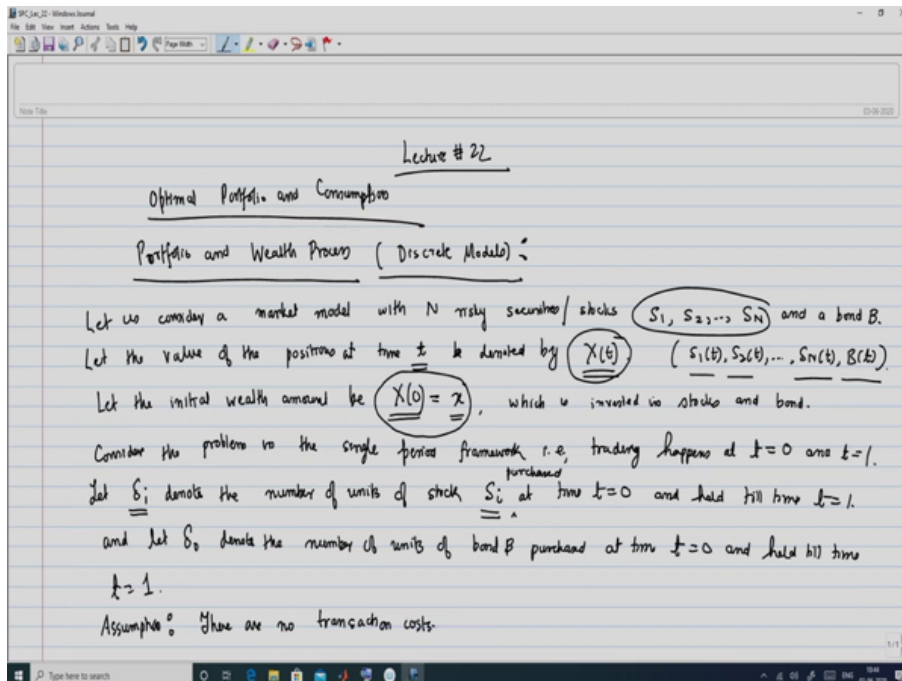 SPC_Lec_22 - Windows Journal
File Edit View Insert Actions Tools Help
Page Width
Note Title
03-06-2020
Lecture # 22
Optimal Portfolio and Consumption
Portfolio and Wealth Process (Discrete Models):
Let us consider a market model with N risky securities/stocks S1, S2,..., SN and a bond B.
Let the value of the positions at time t be denoted by X(t) (S1(t), S2(t),..., SN(t), B(t)).
Let the initial wealth amount be X(0) = x, which is invested in stocks and bond.
Consider the problem in the single period framework i.e, trading happens at t=0 and t=1.
Let δi denote the number of units of stock Si purchased at time t=0 and held till time t=1.
and let δ0 denote the number of units of bond B purchased at time t=0 and held till time
t=1.
Assumption: There are no transaction costs.
1/1
Type here to search
ENG